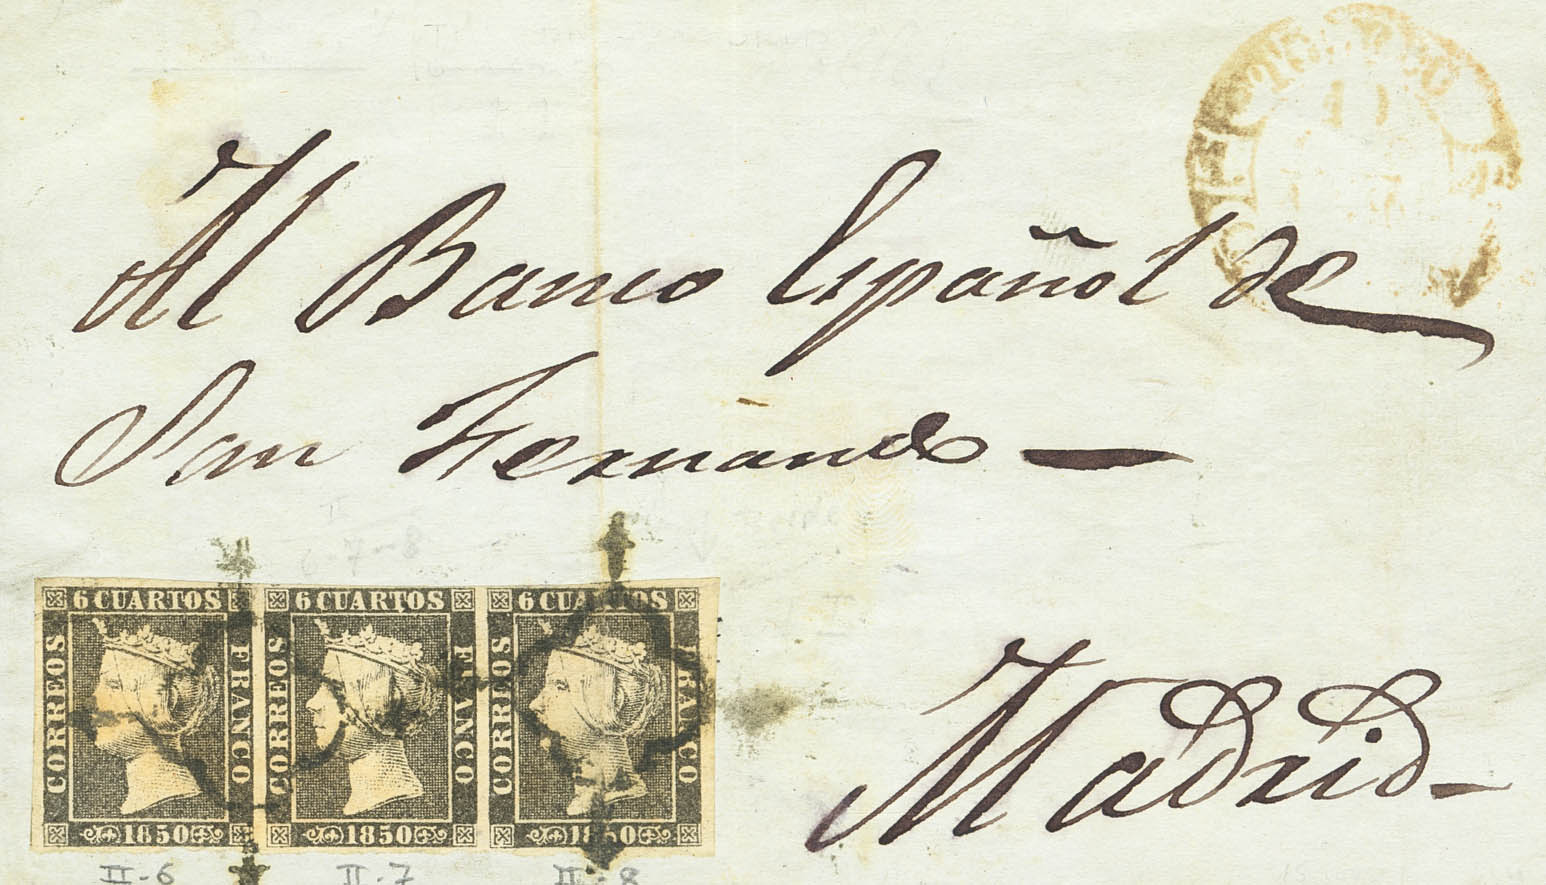 Al Banco Español de
San Fernando
Madrid
6 CUARTOS
CORREOS
FRANCO
1850
6 CUARTOS
CORREOS
FRANCO
1850
6 CUARTOS
CORREOS
FRANCO
1850
II-6
II-7
II-8